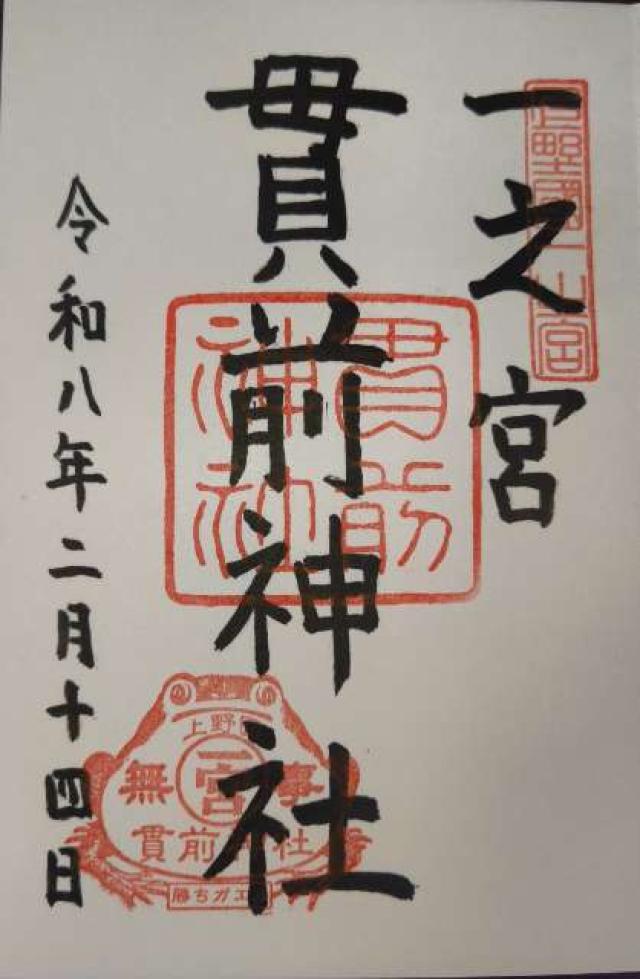 一之宮
上野國一之宮
貫前神社
貫前神社
上野國
一宮
無事
貫前神社
勝ちガエル
令和八年二月十四日